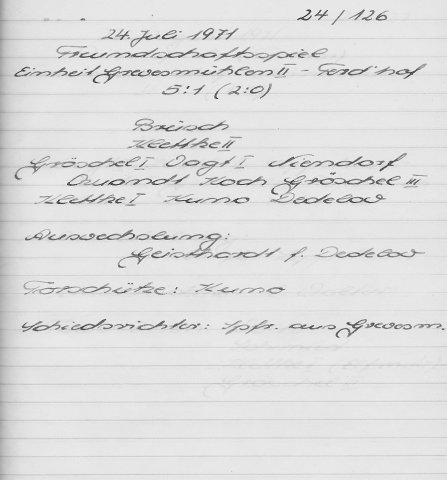 24/126
24. Juli 1971
Freundschaftsspiel
Einheit Grevesmühlen II - Ferd'hof
5:1 (2:0)
Brüsch
Klettke II
Gröschel I Vagt I Niendorf
Quandt Koch Gröschel III
Klettke I Kumo Dedelow
Auswechslung:
Geisthardt f. Dedelow
Torschütze: Kumo
Schiedsrichter: Spfr. aus Grevesm.